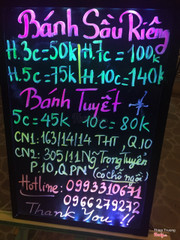 Bánh Sầu Riêng
H.3c=50k H.7c=100k
H.5c=75k H.10c=140k
Bánh Tuyết
5c=45k 10c=80k
CN1: 163/14/14 THT Q.10
CN2: 305/11 Ng Trọng Tuyển
P.10, QPN (có chỗ ngồi)
Hotline: 0993310671
0966279272
Thank You !!